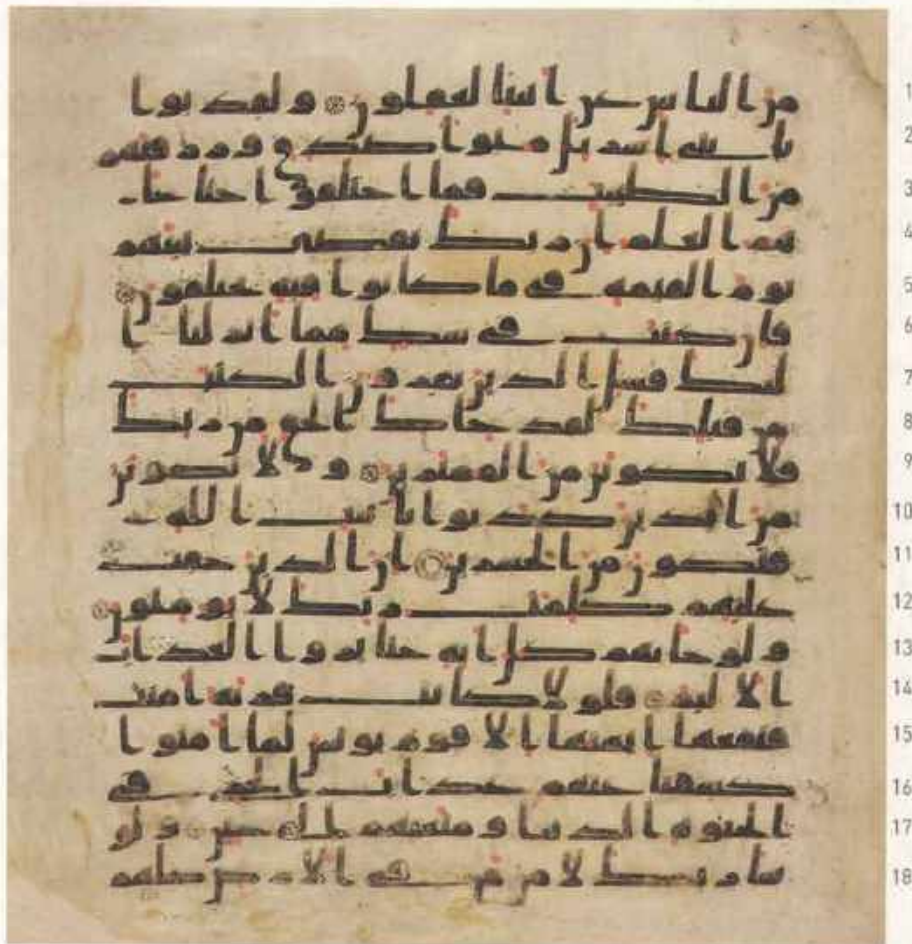 1 من الناس عن ايتنا لغفلون ولقد بوا
2 نا بني اسريل مبوا صدق ورزقنهم
3 من الطيبت فما اختلفوا حتا جا
4 هم العلم ان ربك يقضي بينهم
5 يوم القيمة في ما كانوا فيه يختلفون
6 فان كنت في شك مما انزلنا ا
7 ليك فسل الذين يقرون الكتب
8 من قبلك لقد جاك الحق من ربك
9 فلا تكونن من الممترين ولا تكونن
10 من الذين كذبوا بايت الله
11 فتكون من الخسرين ان الذين حقت
12 عليهم كلمت ربك لا يومنون
13 ولو جاتهم كل اية حتا يروا العذاب
14 الاليم فلولا كانت قرية امنت
15 فنفعها ايمنها الا قوم يونس لما امنوا
16 كشفنا عنهم عذاب الخزي في
17 الحيوة الدنيا ومتعنهم الى حين ولو
18 شا ربك لامن من في الارض كلهم